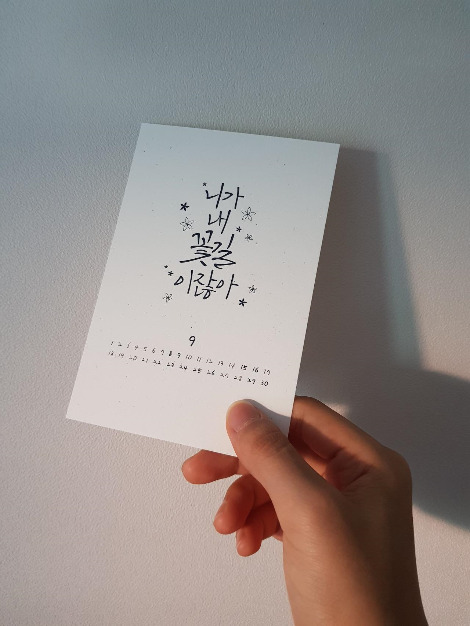 니가
내
꽃길
이잖아
9
1 2 3 4 5 6 7 8 9 10 11 12 13 14 15 16 17
18 19 20 21 22 23 24 25 26 27 28 29 30